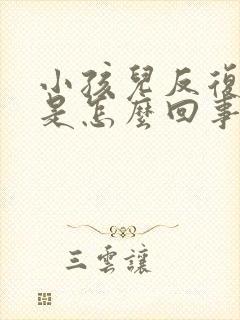 小孩兒反復
是怎麼回事
三雲讓